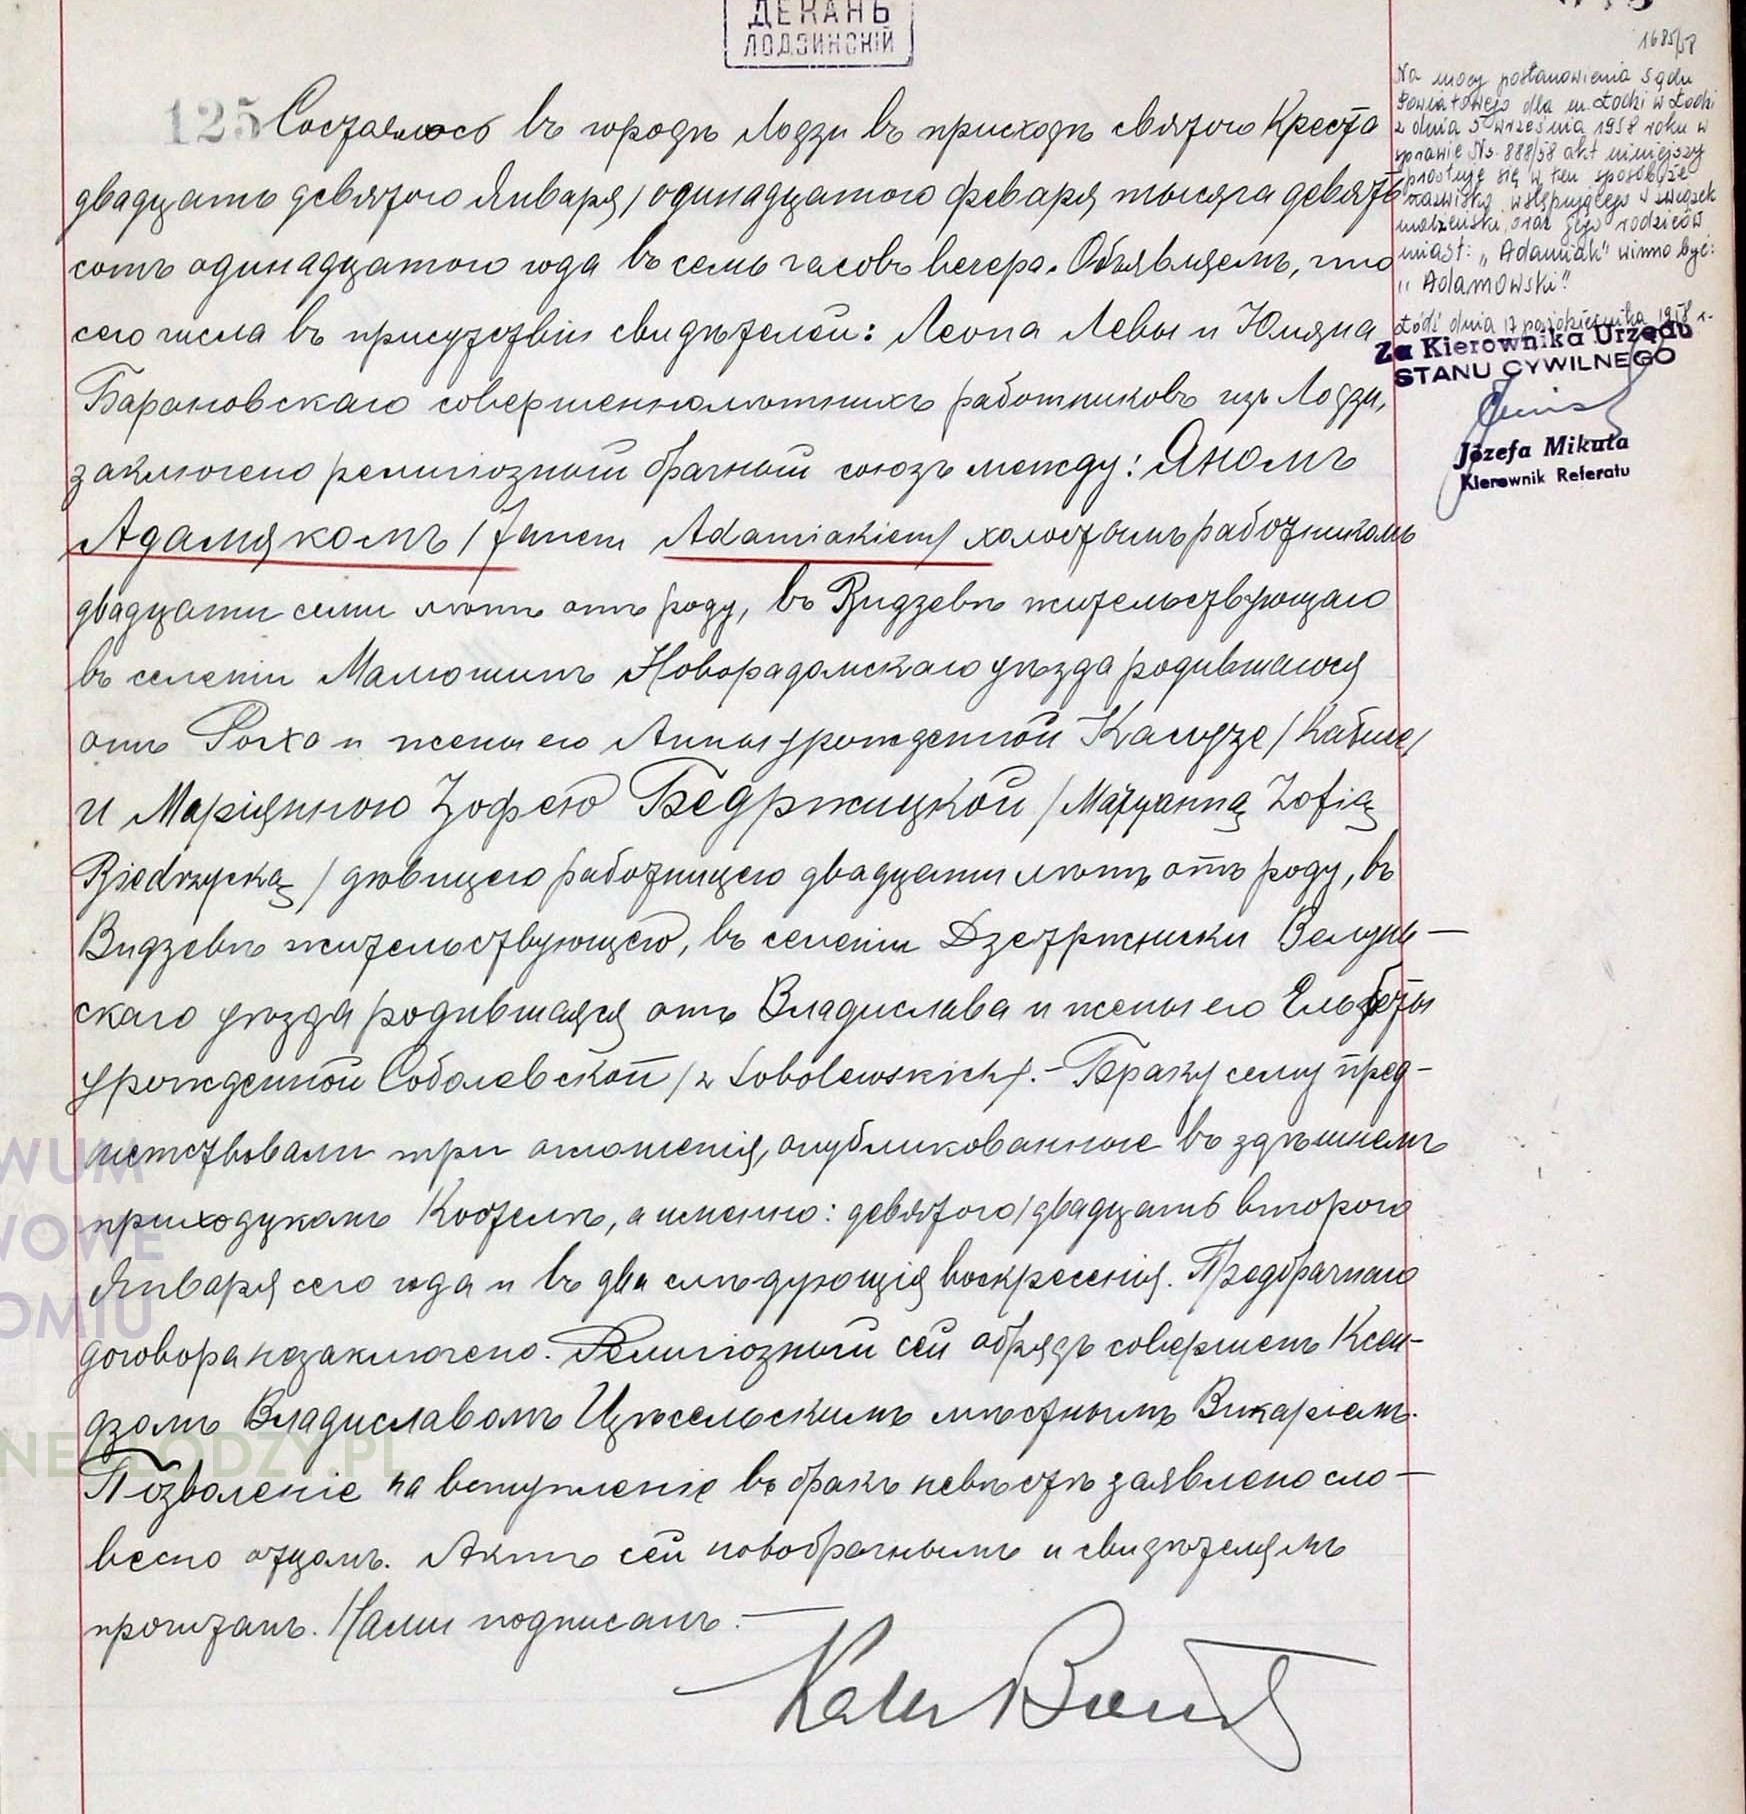 ДЕКАНЪ
ЛОДЗИНСКІЙ
1685/58
125 Состоялось въ городѣ Лодзи въ приходѣ святого Креста
двадцать девятого Января / одинадцатого февраля тысяча девять
сотъ одинадцатого года въ семь часовъ вечера. Объявляемъ, что
сего числа въ присутствіи свидѣтелей: Леона Левы и Юліяна
Барановскаго совершеннолѣтнихъ работниковъ изъ Лодзи,
заключено религіозный брачный союзъ между: Яномъ
Адамякомъ / Janem Adamiakiem/ холостымъ работникомъ
двадцати семи лѣтъ отъ роду, въ Видзевѣ жительствующаго
въ селеніи Малюшинъ Новорадомскаго уѣзда родившагося
отъ Роха и жены его Анны урожденной Калудзе /
и Маріянною Зофею Бедржицкой / Maryanną Zofią
Biedrzycką / дѣвицею работницею двадцати лѣтъ отъ роду, въ
Видзевѣ жительствующею, въ селеніи Велун—
скаго уѣзда родившаяся отъ Владислава и жены его Ельзбеты
урожденной Соболевской / z Sobolewskich/. – Браку сему пред–
шествовали три оглошенія, опубликованные въ здѣшнемъ
приходскомъ Костелѣ, а именно: девятого / двадцать второго
Января сего года и въ два слѣдующія воскресенія. Предбрачнаго
договора незаключено. Религіозный сей обрядъ совершенъ Ксен–
дзомъ Владиславомъ Цѣсельскимъ мѣстнымъ Викаріемъ.
Позволеніе на вступленіе въ бракъ невѣстѣ заявлено сло—
весно отцомъ. Актъ сей новобрачнымъ и свидѣтелямъ
прочитанъ. Нами подписанъ. —
Na mocy postanowienia Sądu
Powiatowego dla m. Łodzi w Łodzi
z dnia 5 września 1958 roku w
sprawie Ns. 888/58 akt niniejszy
prostuje się w ten sposób, że
nazwisko wstępującego w związek
małżeński, oraz jego rodziców
miast: „Adamiak" winno być:
„Adamowski"
Łódź dnia 17 października 1958 r.
Za Kierownika Urzędu
STANU CYWILNEGO
Józefa Mikuła
Kierownik Referatu
WUM
WOWE
OMIU
NE.LODZY.PL